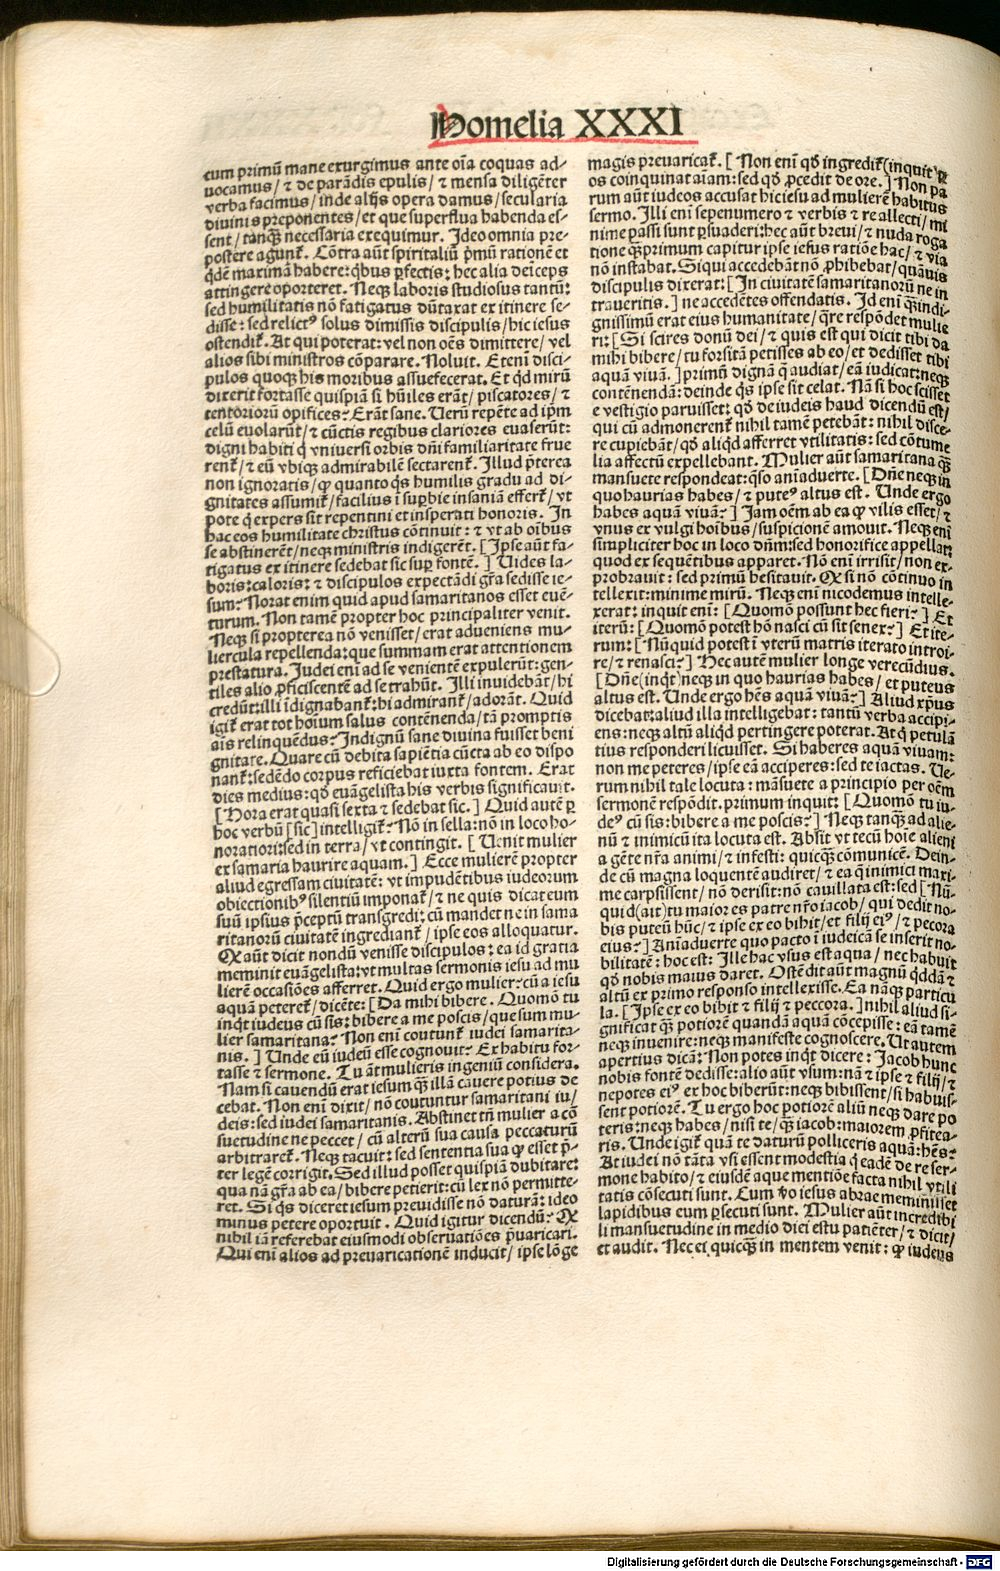 Homelia XXXI
cum primū mane exurgimus ante oīa coquas ad-
vocamus / ⁊ de parādis epulis / ⁊ mensa diligēter
verba facimus / inde alijs opera damus / secularia
divinis preponentes / et que superflua habenda es-
sent / tanqꝫ necessaria exequimur. Ideo omnia pre-
postere agunt̄. Cōtra aūt spiritaliū p̄mū rationē et
q̄dē maximā habere: q̄bus ꝑfectis: hec alia deiceps
attingere oporteret. Neqꝫ laboris studiosus tantū:
sed humilitatis nō fatigatus dūtaxat ex itinere se-
disse: sed relictꝰ solus dimissis discipulis / hic iesus
ostendit̄. At qui poterat: vel non oēs dimittere / vel
alios sibi ministros cōparare. Noluit. Etenī disci-
pulos quoqꝫ his moribus assuefecerat. Et qd̄ mirū
dixerit fortasse quispiā si hūiles erāt / piscatores / ⁊
tentorioruū opifices? Erāt sane. Verū repēte ad ip̄m
celū evolarūt / ⁊ cūctis regibus clariores evaserūt:
digni habiti q̄ vniversi orbis dn̄i familiaritate frue
rent̄ / ⁊ eū vbiqꝫ admirabilē sectarent̄. Illud p̄terea
non ignoratis / ꝙ quanto q̄s humilis gradu ad di-
gnitates assumit̄ / facilius ī supbie insaniā effert̄ / vt
pote q̄ expers sit repentini et insperati honoris. In
hac eos humilitate christus cōtinuit: ⁊ vt ab oībus
se abstinerēt / neqꝫ ministris indigerēt. [Ipse aūt fa-
tigatus ex itinere sedebat sic suꝑ fontē.] Vides la-
boris: caloris: ⁊ discipulos expectādi gr̄a sedisse ie-
sum? Norat enim quid apud samaritanos esset evē-
turum. Non tamē propter hoc principaliter venit.
Neqꝫ si propterea nō venisset / erat adveniens mu-
liercula repellenda: que summam erat attentionem
prestatura. Iudei enī ad se venientē expulerūt: gen-
tiles alio ꝓficiscentē ad se trahūt. Illi invidebāt / hi
credūt: illi īdignabant̄: hi admirant̄ / adorāt. Quid
igit̄ erat tot hoīum salus contēnenda / tā promptis
aīs relinquēdus? Indignū sane divina fuisset beni
gnitate. Quare cū debita sapiētia cūcta ab eo dispo
nant̄: sedēdo corpus reficiebat iuxta fontem. Erat
dies medius: qd̄ evāgelista his verbis significavit.
[Hora erat quasi sexta ⁊ sedebat sic.] Quid autē ꝑ
hoc verbū [sic] intelligit̄? Nō in sella: nō in loco ho-
noratiori: sed in terra / vt contingit. [Venit mulier
ex samaria haurire aquam.] Ecce mulierē propter
aliud egressam civitatē: vt impudētibus iudeorum
obiectionibꝰ silentiū imponat̄ / ⁊ ne quis dicat eum
suū ipsius p̄ceptū transgredi: cū mandet ne in sama
ritanorū civitatē ingrediant̄ / ipse eos alloquatur.
Qꝫ aūt dicit nondū venisse discipulos: ea id gratia
meminit evāgelista: vt multas sermonis iesu ad mu
lierē occasiōes afferret. Quid ergo mulier: cū a iesu
aquā peteret̄ / dicēte: [Da mihi bibere. Quomō tu
inq̄t iudeus cū sis: bibere a me poscis / que sum mu-
lier samaritana? Non enī coutunt̄ iudei samarita-
nis.] Unde eū iudeū esse cognovit? Ex habitu for-
tasse ⁊ sermone. Tu āt mulieris ingeniū considera.
Nam si cavendū erat iesum qꝫ illā cavere potius de
cebat. Non enī dixit / nō coutuntur samaritani iu/
deis: sed iudei samaritanis. Abstinet tn̄ mulier a cō
suetudine ne peccet / cū alterū sua causa peccaturū
arbitraret̄. Neqꝫ tacuit: sed sententia sua ꝙ esset p̄-
ter legē corrigit. Sed illud posset quispiā dubitare:
qua nā gr̄a ab ea / bibere petierit: cū lex nō permitte-
ret. Si q̄s diceret iesum previdisse nō daturā: ideo
minus petere oportuit. Quid igitur dicendū? Qꝫ
nihil iā referebat eiusmodi observatiōes p̄varicari.
Qui enī alios ad prevaricationē inducit / ipse lōge
magis prevaricat̄. [Non enī qd̄ ingredit̄ (inquit) ꝑ
os coinquinat aīam: sed qd̄ ꝓcedit de ore.] Non pa
rum aūt iudeos accusat hic iesu ad mulierē habitus
sermo. Illi enī sepenumero ⁊ verbis ⁊ re allecti / mi
nime passi sunt ꝑsuaderi: hec aūt brevi / ⁊ nuda roga
tione qꝫprimum capitur ipse iesus ratiōe hac / ⁊ via
nō instabat. Si qui accedebāt nō ꝓhibebat / quāvis
discipulis dixerat: [In civitatē samaritanorū ne in
traveritis.] ne accedētes offendatis. Id enī qꝫ indi-
gnissimū erat eius humanitate / q̄re respōdet mulie
ri: [Si scires donū dei / ⁊ quis est qui dicit tibi da
mihi bibere / tu forsitā petisses ab eo / et dedisset tibi
aquā vivā.] primū dignā q̄ audiat / eā iudicat: neqꝫ
contēnendā: deinde q̄s ipse sit celat. Nā si hoc scisset
e vestigio paruisset: qd̄ de iudeis haud dicendū est /
qui cū admonerent̄ nihil tamē petebāt: nihil disce-
re cupiebāt / qd̄ aliqd̄ afferret vtilitatis: sed cōtume
lia affectū expellebant. Mulier aūt samaritana qꝫ
mansuete respondeat: q̄so anīadverte. [Dn̄e neqꝫ in
quo haurias habes / ⁊ puteꝰ altus est. Unde ergo
habes aquā vivā?] Iam oēm ab ea ꝙ vilis esset / ⁊
vnus ex vulgi hoībus / suspicionē amovit. Neqꝫ enī
simpliciter hoc in loco dn̄m: sed honorifice appellat:
quod ex sequētibus apparet. Nō enī irrisit / non ex-
probravit: sed primū hesitavit. Qꝫ si nō cōtinuo in
tellexit: minime mirū. Neqꝫ enī nicodemus intelle-
xerat: inquit enī: [Quomō possunt hec fieri?] Et
iterū: [Quomō potest hō nasci cū sit senex?] Et ite-
rum: [Nūquid potest ī vterū matris iterato introi-
re / ⁊ renasci?] Hec autē mulier longe verecūdius.
[Dn̄e (inq̄t) neqꝫ in quo haurias habes / et puteus
altus est. Unde ergo hēs aquā vivā?] Aliud xp̄us
dicebat: aliud illa intelligebat: tantū verba accipi-
ens: neqꝫ altū aliqd̄ pertingere poterat. At q̄ petulā
tius responderi licuisset. Si haberes aquā vivam:
non me peteres / ipse eā acciperes: sed te iactas. Ve-
rum nihil tale locuta: māsuete a principio per oēm
sermonē respōdit. primum inquit: [Quomō tu iu-
deꝰ cū sis: bibere a me poscis?] Neqꝫ tanqꝫ ad alie-
nū ⁊ inimicū ita locuta est. Absit vt tecū hoīe alieni
a gēte nr̄a animi / ⁊ infesti: quicqꝫ cōmunicē. Dein-
de cū magna loquentē audiret / ⁊ ea q̄ inimici maxi-
me carpsissent / nō derisit: nō cavillata est: sed [Nū-
quid (ait) tu maior es patre nr̄o iacob / qui dedit no-
bis puteū hūc / ⁊ ipse ex eo bibit / et filij eiꝰ / ⁊ pecora
eius?] Anīadverte quo pacto ī iudeicā se inserit no-
bilitatē: hoc est: Ille hac vsus est aqua / nec habuit
qd̄ nobis maius daret. Ostēdit aūt magnū qd̄dā ⁊
altū ex primo responso intellexisse. Ea nāqꝫ particu
la. [Ipse ex eo bibit ⁊ filij ⁊ peccora.] nihil aliud si-
gnificat qꝫ potiorē quandā aquā cōcepisse: eā tamē
neqꝫ invenire: neqꝫ manifeste cognoscere. Ut autem
apertius dicā: Non potes inq̄t dicere: Jacob hunc
nobis fontē dedisse: alio aūt vsum: nā ⁊ ipse ⁊ filij / ⁊
nepotes eiꝰ ex hoc biberūt: neqꝫ bibissent / si habuis-
sent potiorē. Tu ergo hoc potiorē aliū neqꝫ dare po
teris: neqꝫ habes / nisi te / qꝫ iacob: maiorem ꝓfitea-
ris. Unde igit̄ quā te daturū polliceris aquā: hēs?
At iudei nō tāta vsi essent modestia q̄ eadē de re ser-
mone habito / ⁊ eiusdē aque mentiōe facta nihil vtili
tatis cōsecuti sunt. Cum v̄o iesus abrae meminisset
lapidibus eum ꝑsecuti sunt. Mulier aūt incredibi
li mansuetudine in medio diei estu patiēter / ⁊ dicit /
et audit. Nec ei quicqꝫ in mentem venit: ꝙ iudeus
Digitalisierung gefördert durch die Deutsche Forschungsgemeinschaft - DFG